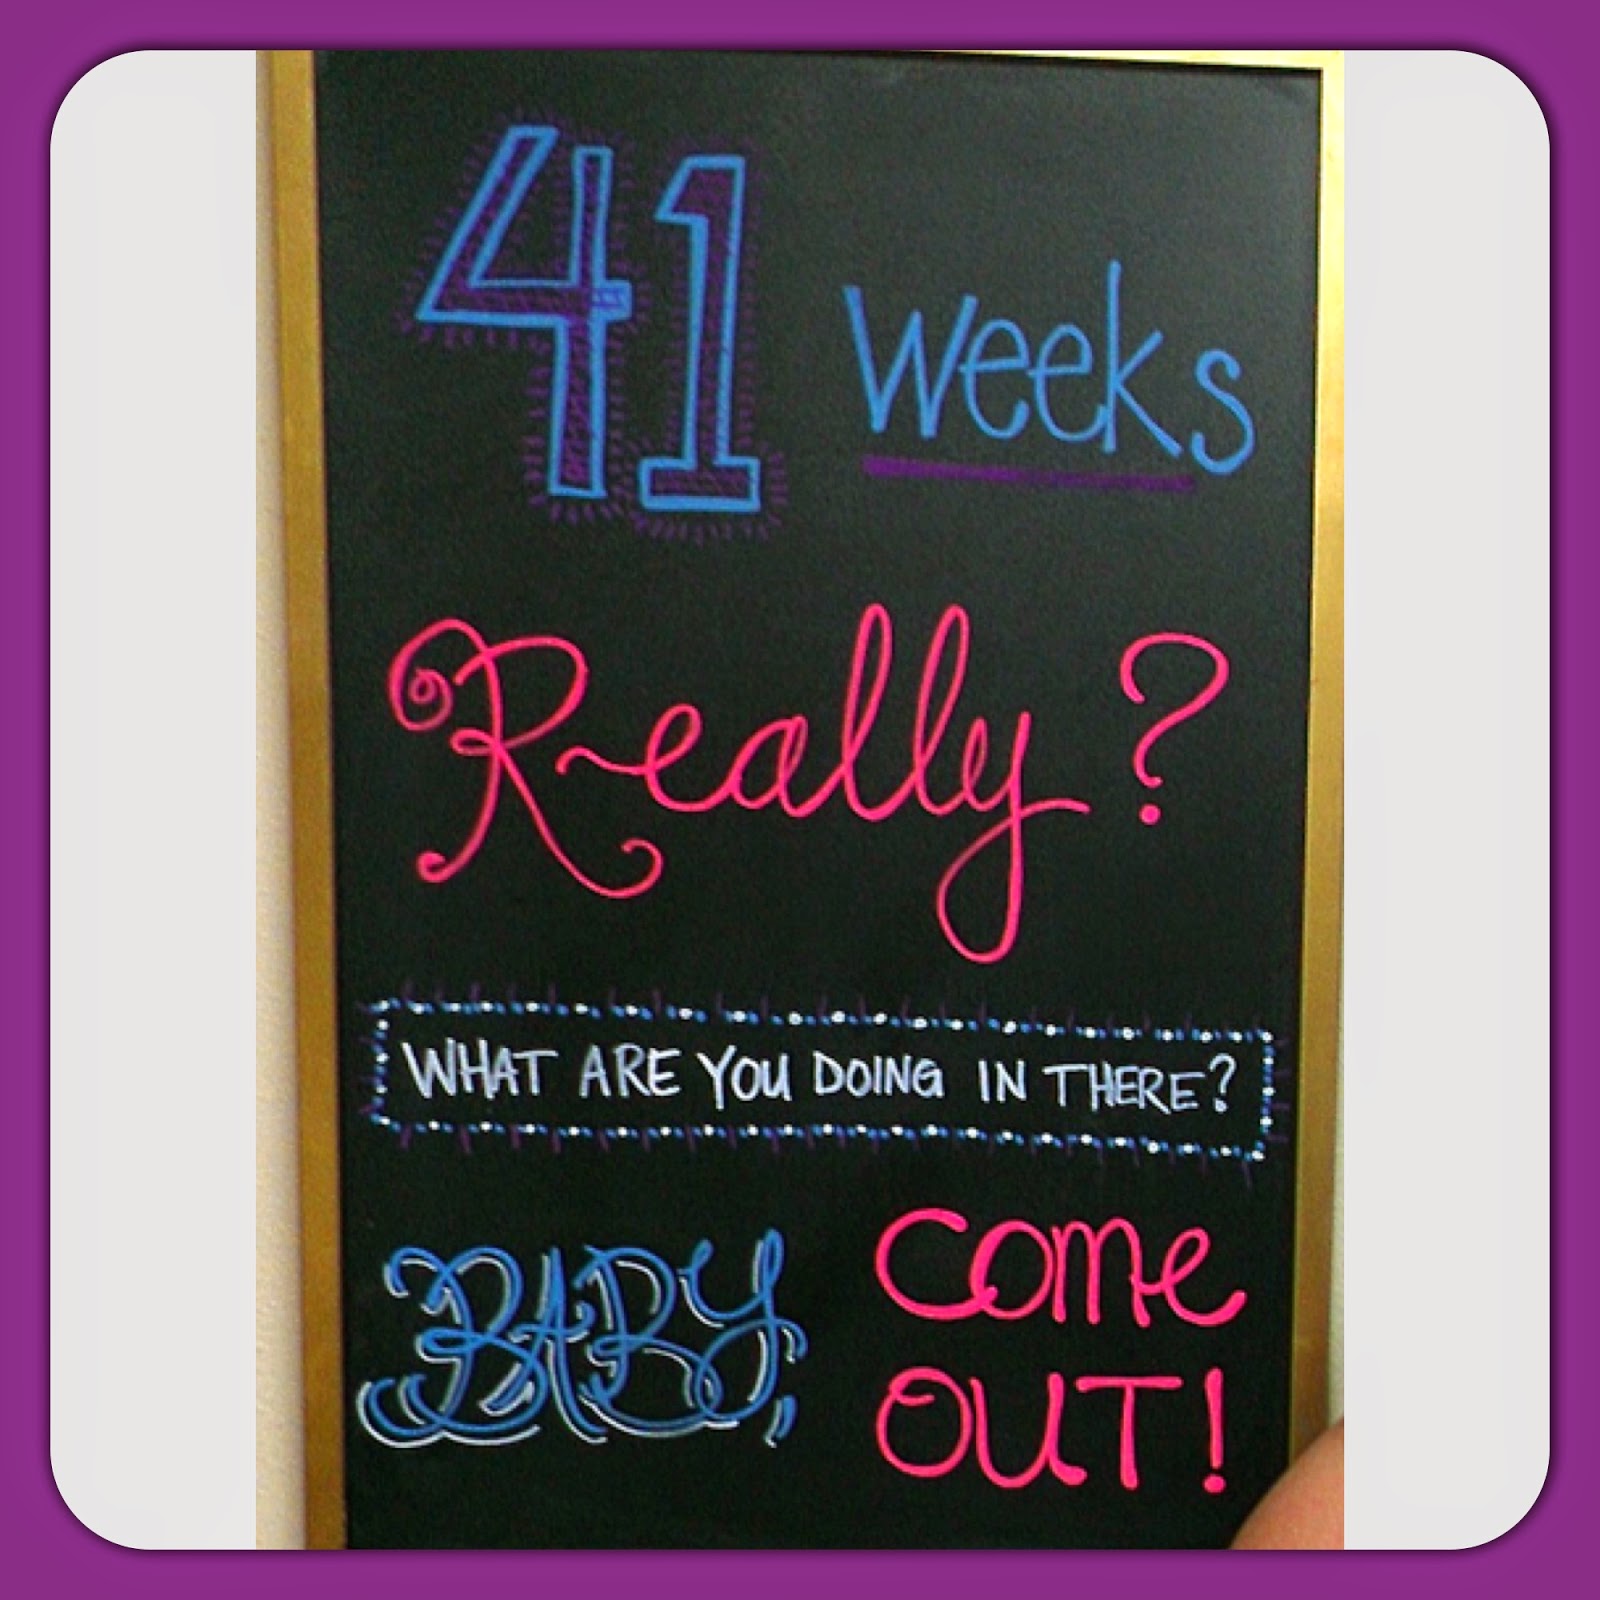 41 weeks
Really?
WHAT ARE YOU DOING IN THERE?
BABY, COME
OUT!